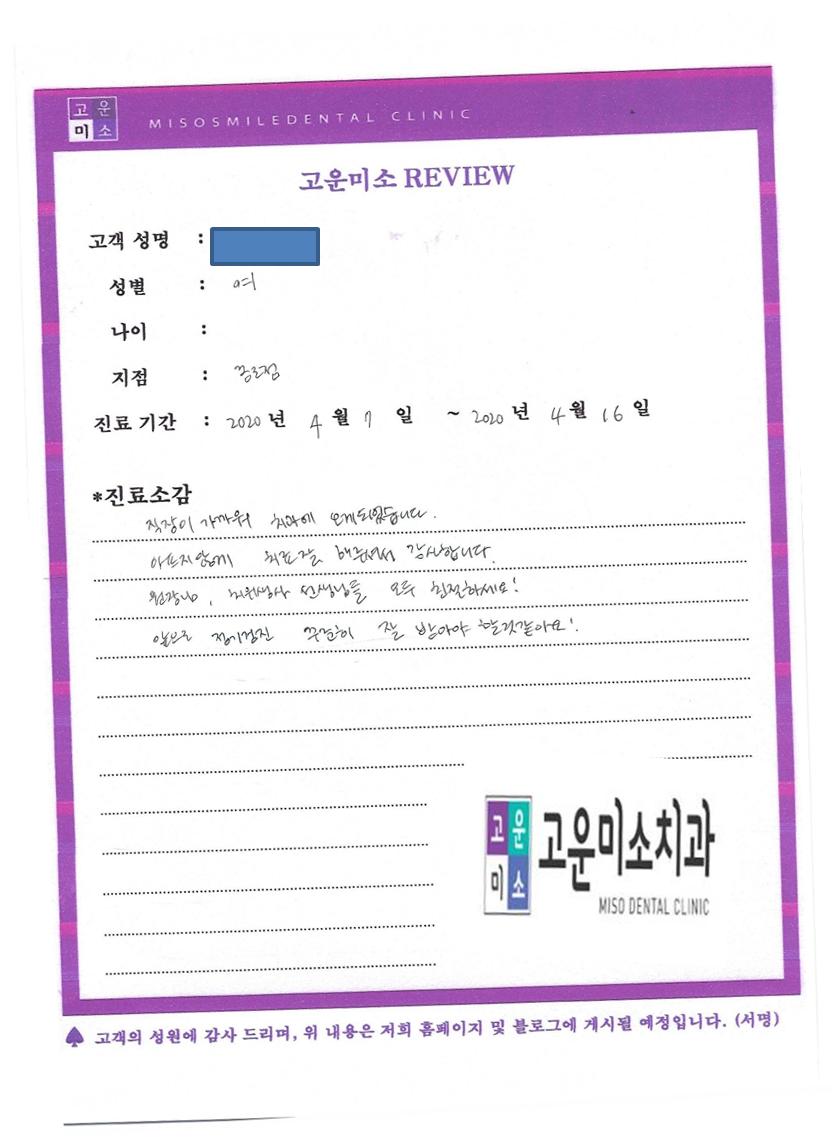 고운
미소
MISOSMILEDENTAL CLINIC
고운미소 REVIEW
고객 성명 :
성별 : 여
나이 :
지점 : 종로점
진료 기간 : 2020 년 4 월 7 일 ~ 2020 년 4 월 16 일
*진료소감
직장이 가까워 치과에 오게되었습니다.
아프지않게 치료잘 해주셔서 감사합니다.
원장님, 치위생사 선생님들 모두 친절하세요!
앞으로 정기검진 꾸준히 잘 받아야 할것같아요!
고운
미소
고운미소치과
MISO DENTAL CLINIC
♠ 고객의 성원에 감사 드리며, 위 내용은 저희 홈페이지 및 블로그에 게시될 예정입니다. (서명)